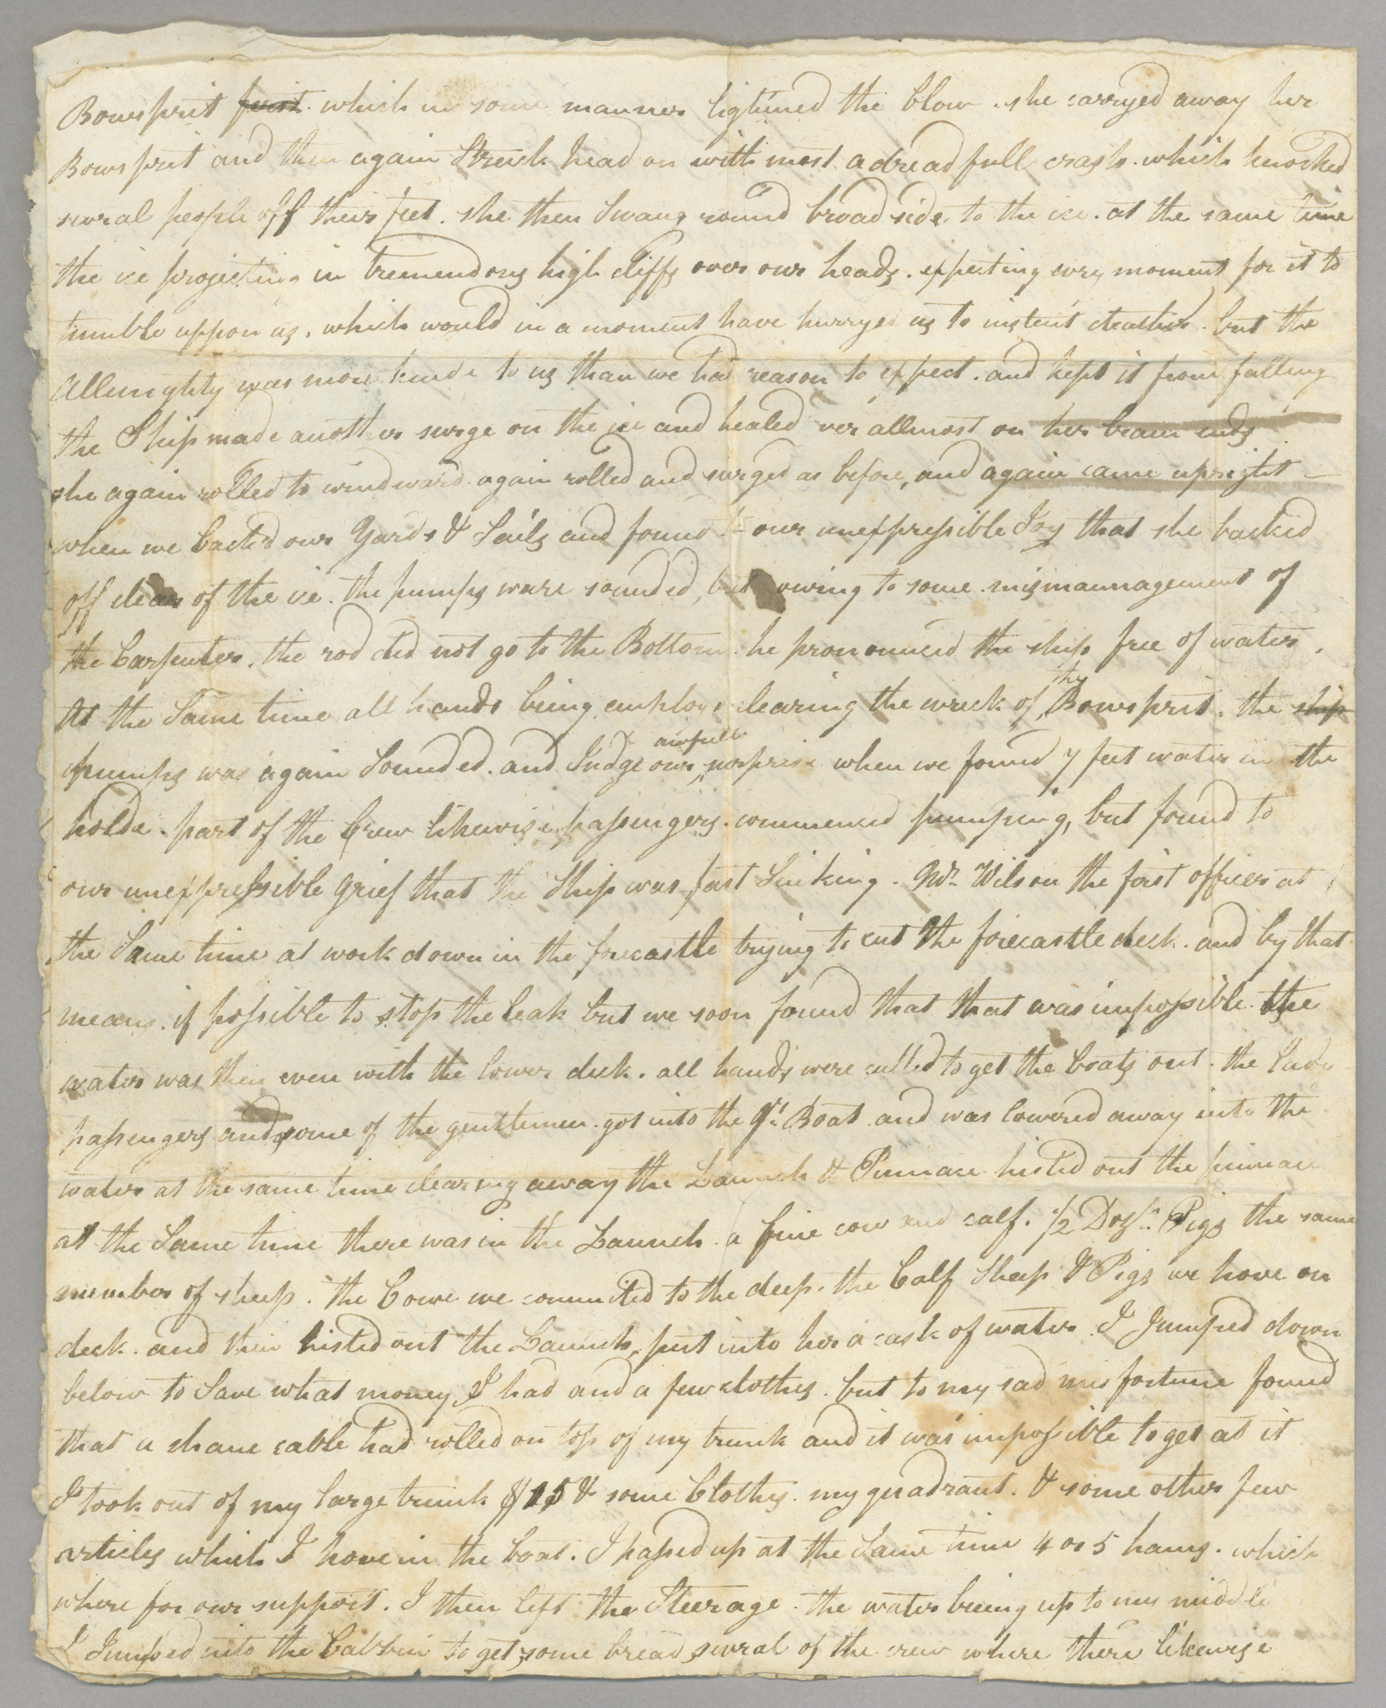 Bowsprit first. which in some manner lightened the blow. she carryed away her
Bowsprit and then again Struck head on with most a dreadfull crash. which knocked
sevral people off their feet. she then Swang round broad side to the ice. at the same time
the ice projecting in tremendous high cliffs over our heads. expecting evry moment for it to
tumble uppon us. which would in a moment have hurryed us to instent death. but the
Allmighty was more kinde to us than we had reason to expect. and kept it from falling
the Ship made another surge on the ice and healed over allmost on her beam ends
she again rolled to windward again rolled and surged as before, and again came upright
when we backed our Yards & Sails and found to our unexpressible Joy that she backed
off clear of the ice. the pumps ware sounded, but owing to some mismannagement of
the Carpenter. the rod did not go to the Bottom. he pronounced the ship free of water.
At the Same time all hands being employd clearing the wreck of the Bowsprit. the ship
pumps was again Sounded. and Judge our awfull surprise when we found 7 feet water in the
holde. part of the Crew likewise passingers. commenced pumping, but found to
our unexpressible grief that the Ship was fast Sinking. Mr. Wilson the first officer at
the Same time at work down in the forecastle trying to cut the forecastle deck. and by that
means. if possible to stop the leak but we soon found that that was impossible. the
water was then even with the lower deck. all hands were called to get the boats out. the Lady
passengers and some of the gentlemen got into the qr. Boat and was lowered away into the
water at the same time clearing away the Launch & Pinnace histed out the pinnace
at the Same time there was in the Launch a fine cow and calf. 1/2 Dozn. Pigs the same
number of sheep. the Cowe we commited to the deep. the Calf Sheep & Pigs we hove on
deck. and then histed out the Launch, put into her a cask of water. I Jumped down
below to Save what money I had and a few clothes. but to my sad misfortune found
that a chane cable had rolled on top of my trunk and it was impossible to get at it
I took out of my large trunk $15 & some Clothes. my quadrant. & some other few
articles which I hove in the boat. I passed up at the Same time 4 or 5 hams. which
where for our support. I then left the Steerage. the water being up to my middle
I Jumped into the Cabbin to get some bread sevral of the crew where there likewise